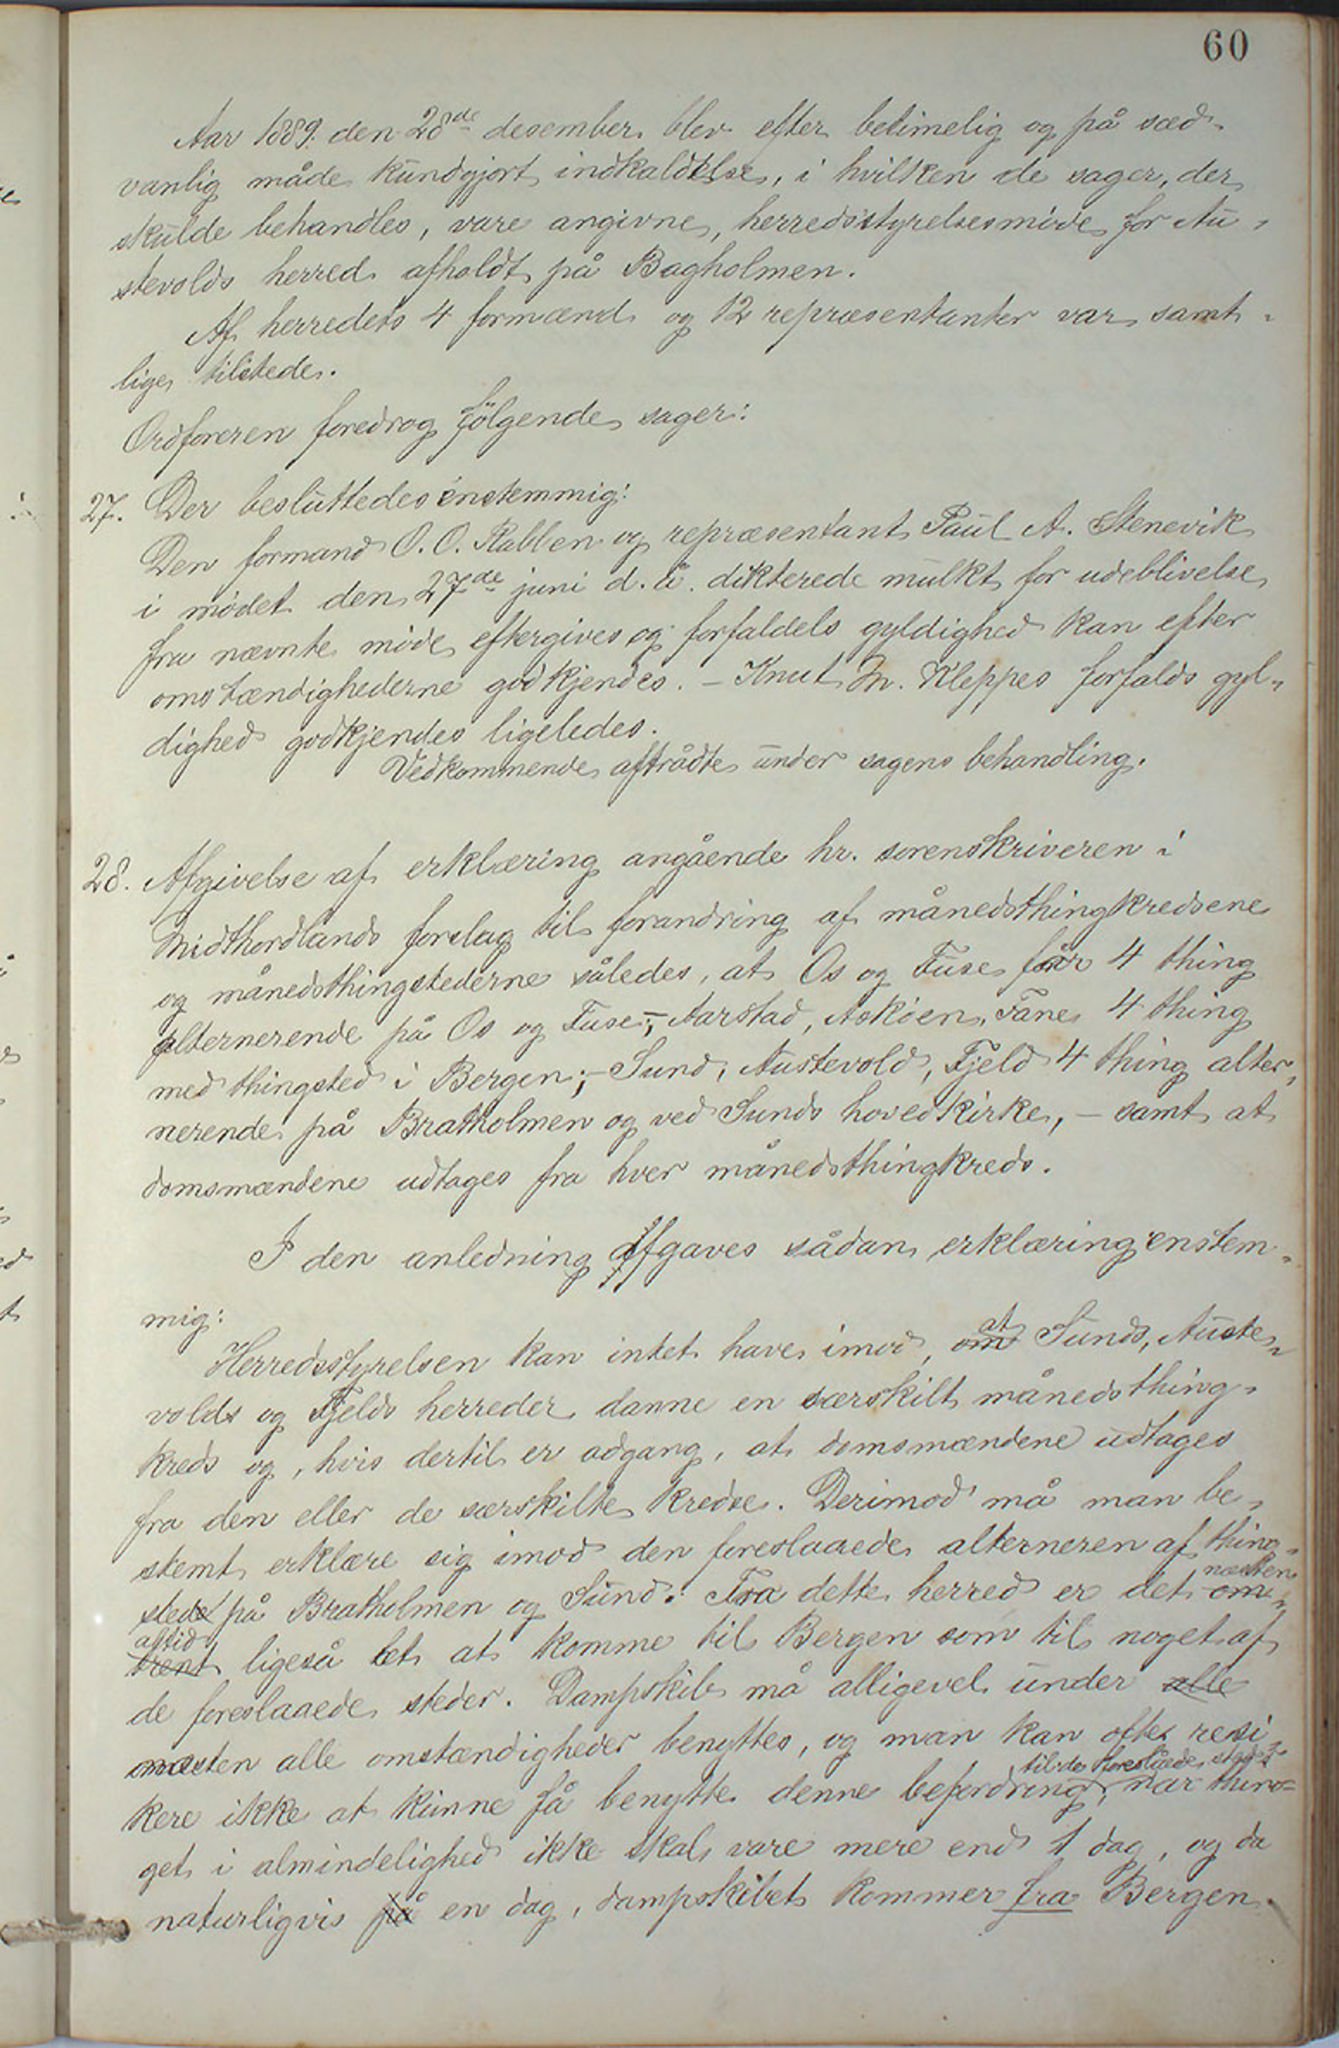 60
Aar 1889 den 28de desember blev efter betimelig og på sæd-
vanlig måde kundgjort indkaldelse, i hvilken de sager, der
skulde behandles, vare angivne, herredsstyrelsesmøde for Au-
stevolds herred afholdt på Bagholmen.
Af herredets 4 formænd og 12 repræsentanter var samt-
lige tilstede.
Ordføreren foredrog følgende sager:
27. Der besluttedes énstemmig:
Den formand O. O. Rabben og repræsentant Paul A. Stenevik
i mødet den 27de juni d. å. dikterede mulkt for udeblivelse
fra nævnte møde eftergives og forfaldets gyldighed kan efter
omstændighederne godkjendes. – Knut M. Kleppes forfalds gyl-
dighed godkjendes ligeledes.
Vedkommende aftrådte under sagens behandling.
28. Afgivelse af erklæring angående hr. sorenskriveren i
Midthordlands forslag til forandring af månedsthingkredsene
og månedsthingstederne således, at Os og Fuse får 4 thing
alternerende på Os og Fuse; – Aarstad, Askøen, Fane 4 thing
med thingsted i Bergen; – Sund, Austevold, Fjeld 4 thing alter-
nerende på Bratholmen og ved Sunds hovedkirke, – samt at
domsmændene udtages fra hver månedsthingkreds.
I den anledning afgaves sådan erklæring enstem-
mig:
Herredsstyrelsen kan intet have imod, om at Sunds, Auste-
volds og Fjelds herreder danne en særskilt månedsthing-
kreds og, hvis dertil er adgang, at domsmændene udtages
fra den eller de særskilte kredse. Derimod må man be-
stemt erklære sig imod den foreslaaede alterneren af thing-
sted på Bratholmen og Sund. Fra dette herred er det næsten om-
altid
trent ligeså let at komme til Bergen som til noget af
de foreslaaede steder. Dampskib må alligevel under alle
næsten alle omstændigheder benyttes, og man kan ofte risi-
kere ikke at kunne få benytte denne befordring til de foreslåede steder, når thin-
get i almindelighed ikke skal vare mere end 1 dag, og da
naturligvis på en dag, dampskibet kommer fra Bergen.